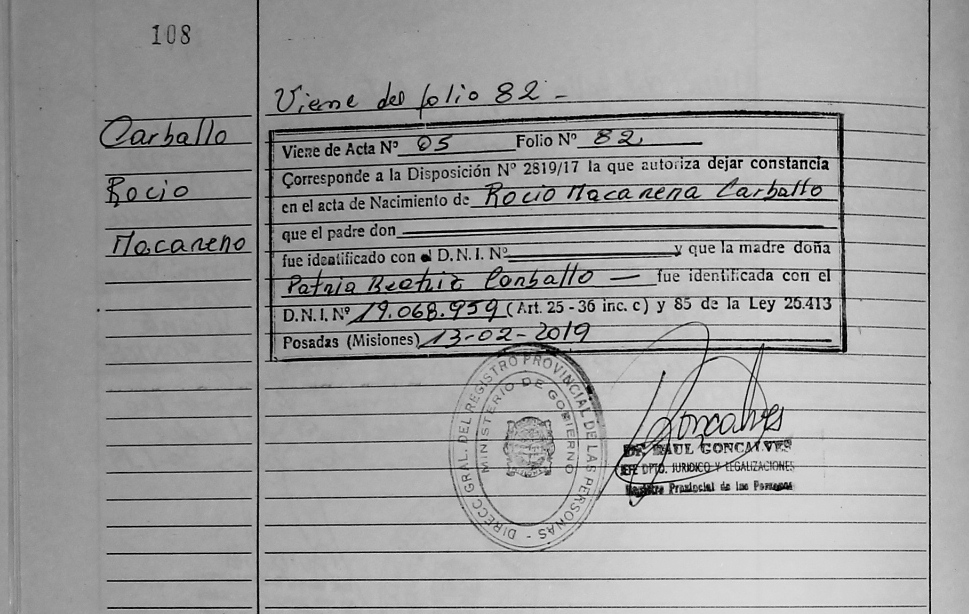 108
Viene del folio 82 -
Carballo
Rocio
Macareno
Viene de Acta Nº 05 Folio Nº 82
Corresponde a la Disposición Nº 2819/17 la que autoriza dejar constancia
en el acta de Nacimiento de Rocio Macarena Carballo
que el padre don
fue identificado con el D.N.I. Nº y que la madre doña
Patria Beatriz Carballo — fue identificada con el
D.N.I. Nº 19.068.959 (Art. 25 - 36 inc. c) y 85 de la Ley 26.413
Posadas (Misiones) 13-02-2019
DIRECC. GRAL. DEL REGISTRO PROVINCIAL DE LAS PERSONAS -
MINISTERIO DE GOBIERNO
Goncalves
Dr. RAUL GONCALVES
JEFE DPTO. JURIDICO Y LEGALIZACIONES
Registro Provincial de las Personas